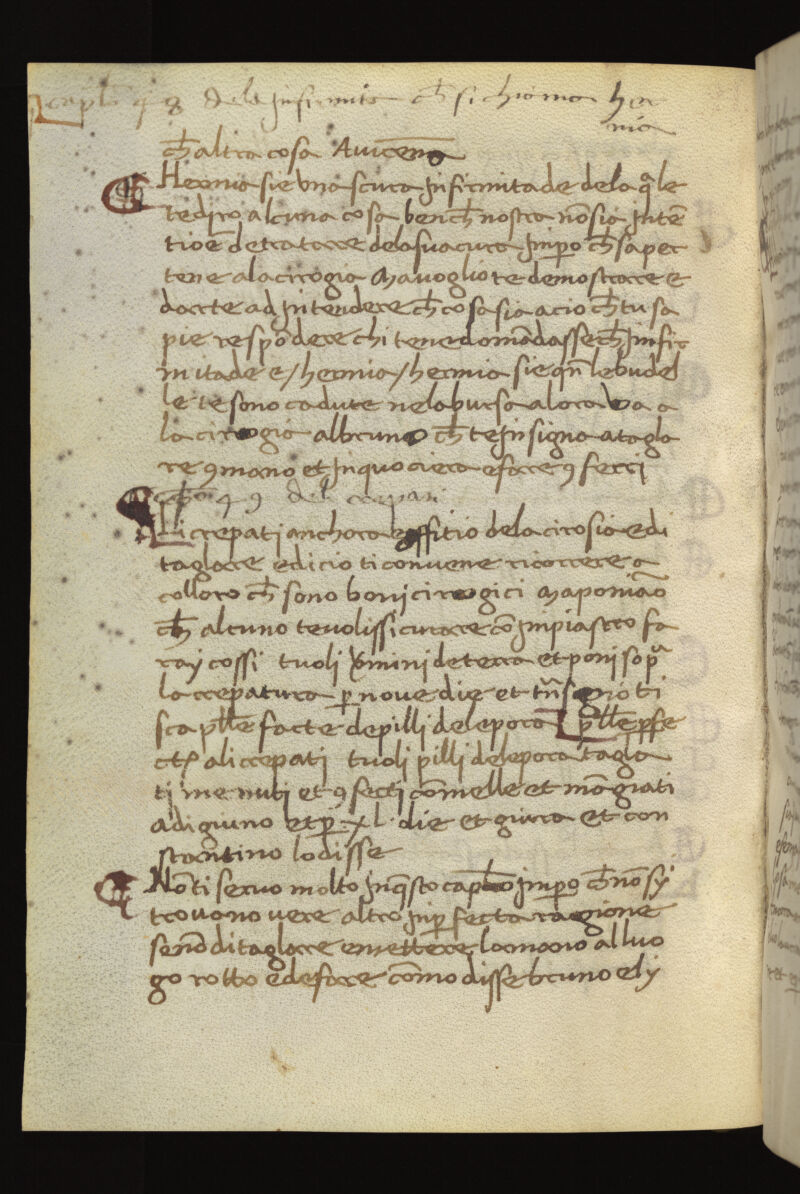 capło 98 dele infirmita ch̄ si chiama her
nia
ch̄ altra cosa Auicēna
Hernia sie una scura infirmitade dela q̄le
te diro alcuna cosa bench̄ nostra nō sia intē
tioē de tratarre dela sua cura inp̄o ch̄ sa per
tene ala cirogia Ma uoglio te demostrare e
darte ad intendere ch̄ cosa sia acio ch̄ tu sa
pie respōdere chi tene domādasse ch̄ infir
mitade e / hernia / hernia sie qn̄ le budel
le te sono cadute nela bursa alora ua a
la cirogia al bruno ch̄ te insigna a tagla
re 9 mano et in quociera e farce 9 ferri
99 deli crepati
Li crepati anchora e offitio dela cirosia e di
taglare e dicio ti convene ricorrere a
colloro ch̄ sono boni cirogici Ma poniāo
ch̄ alcuno te volissi curare cō inpiastro fa
ray cossi tuoli vermini de terra et poni sop̄a
la crepatura p̄ nove die et tn̄
sca pllē facte de pilli de lepora pllē p̄fe
cte ali crepati tuoli pilli de lepora tagla
ti menuti et 9fecti cō melle et māgiati
a digiuno et p̄ xl die et giura et con
stantino lo disse
Nō ti servo molto in q̄sto capło inp̄o ch̄ nō sy
trovano vere altro inp̄fecta ragione
se nō di taglare e mettere la mano al luo
go rotto e de fare cōmo disse bruno e ly